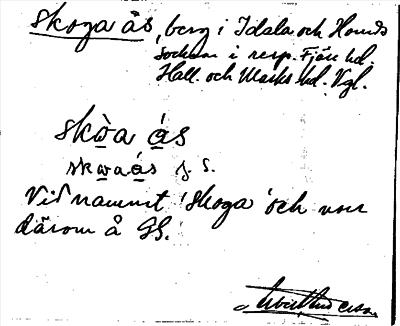 Skoga ås, berg i Idala och Horreds
socknar i resp. Fjäre hd.
Hall. och Marks hd. Vgl.
skòa ás
skoaás j. S.
Vid namnet 'Skoga' och von
därom å GS.